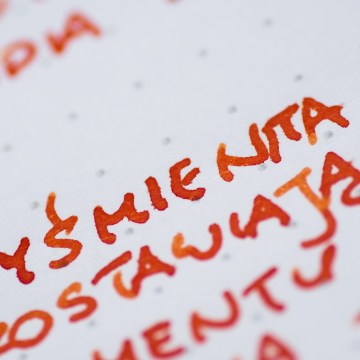 DA
YŚMIENITA
ZOSTAWIAJĄ
MENTU